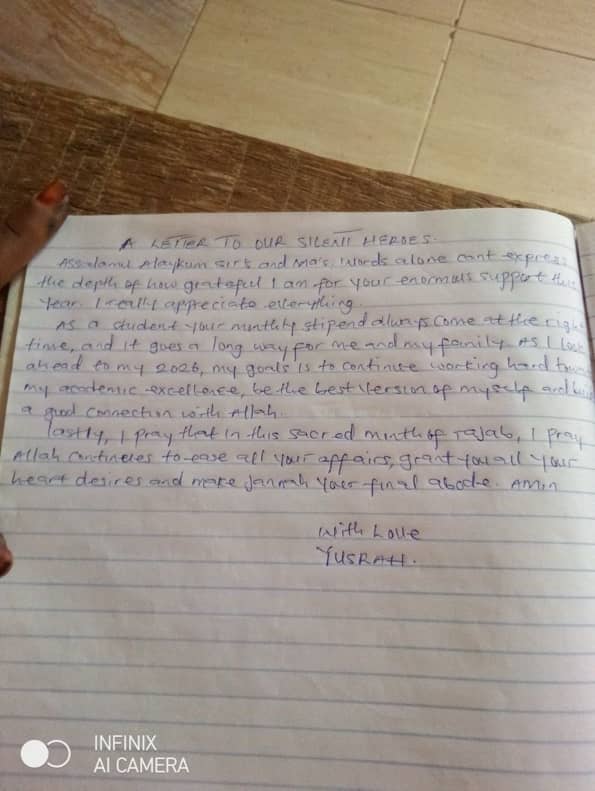 A LETTER TO OUR SILENT HEROES.
Assalamu Alaykum sir's and Ma's. Words alone cant express
the depth of how grateful I am for your enormous support this
Year. I really appreciate everything.
As a student your monthly stipend always come at the right
time, and it goes a long way for me and my family. As I look
ahead to my 2026, my goals is to continue working hard
my academic excellence, be the best version of myself and
a good connection with Allah.
lastly, I pray that in this sacred month of rajab, I pray
Allah continues to ease all your affairs, grant you all your
heart desires and make Jannah your final abode. Amin
With Love
YUSRAH.
INFINIX
AI CAMERA